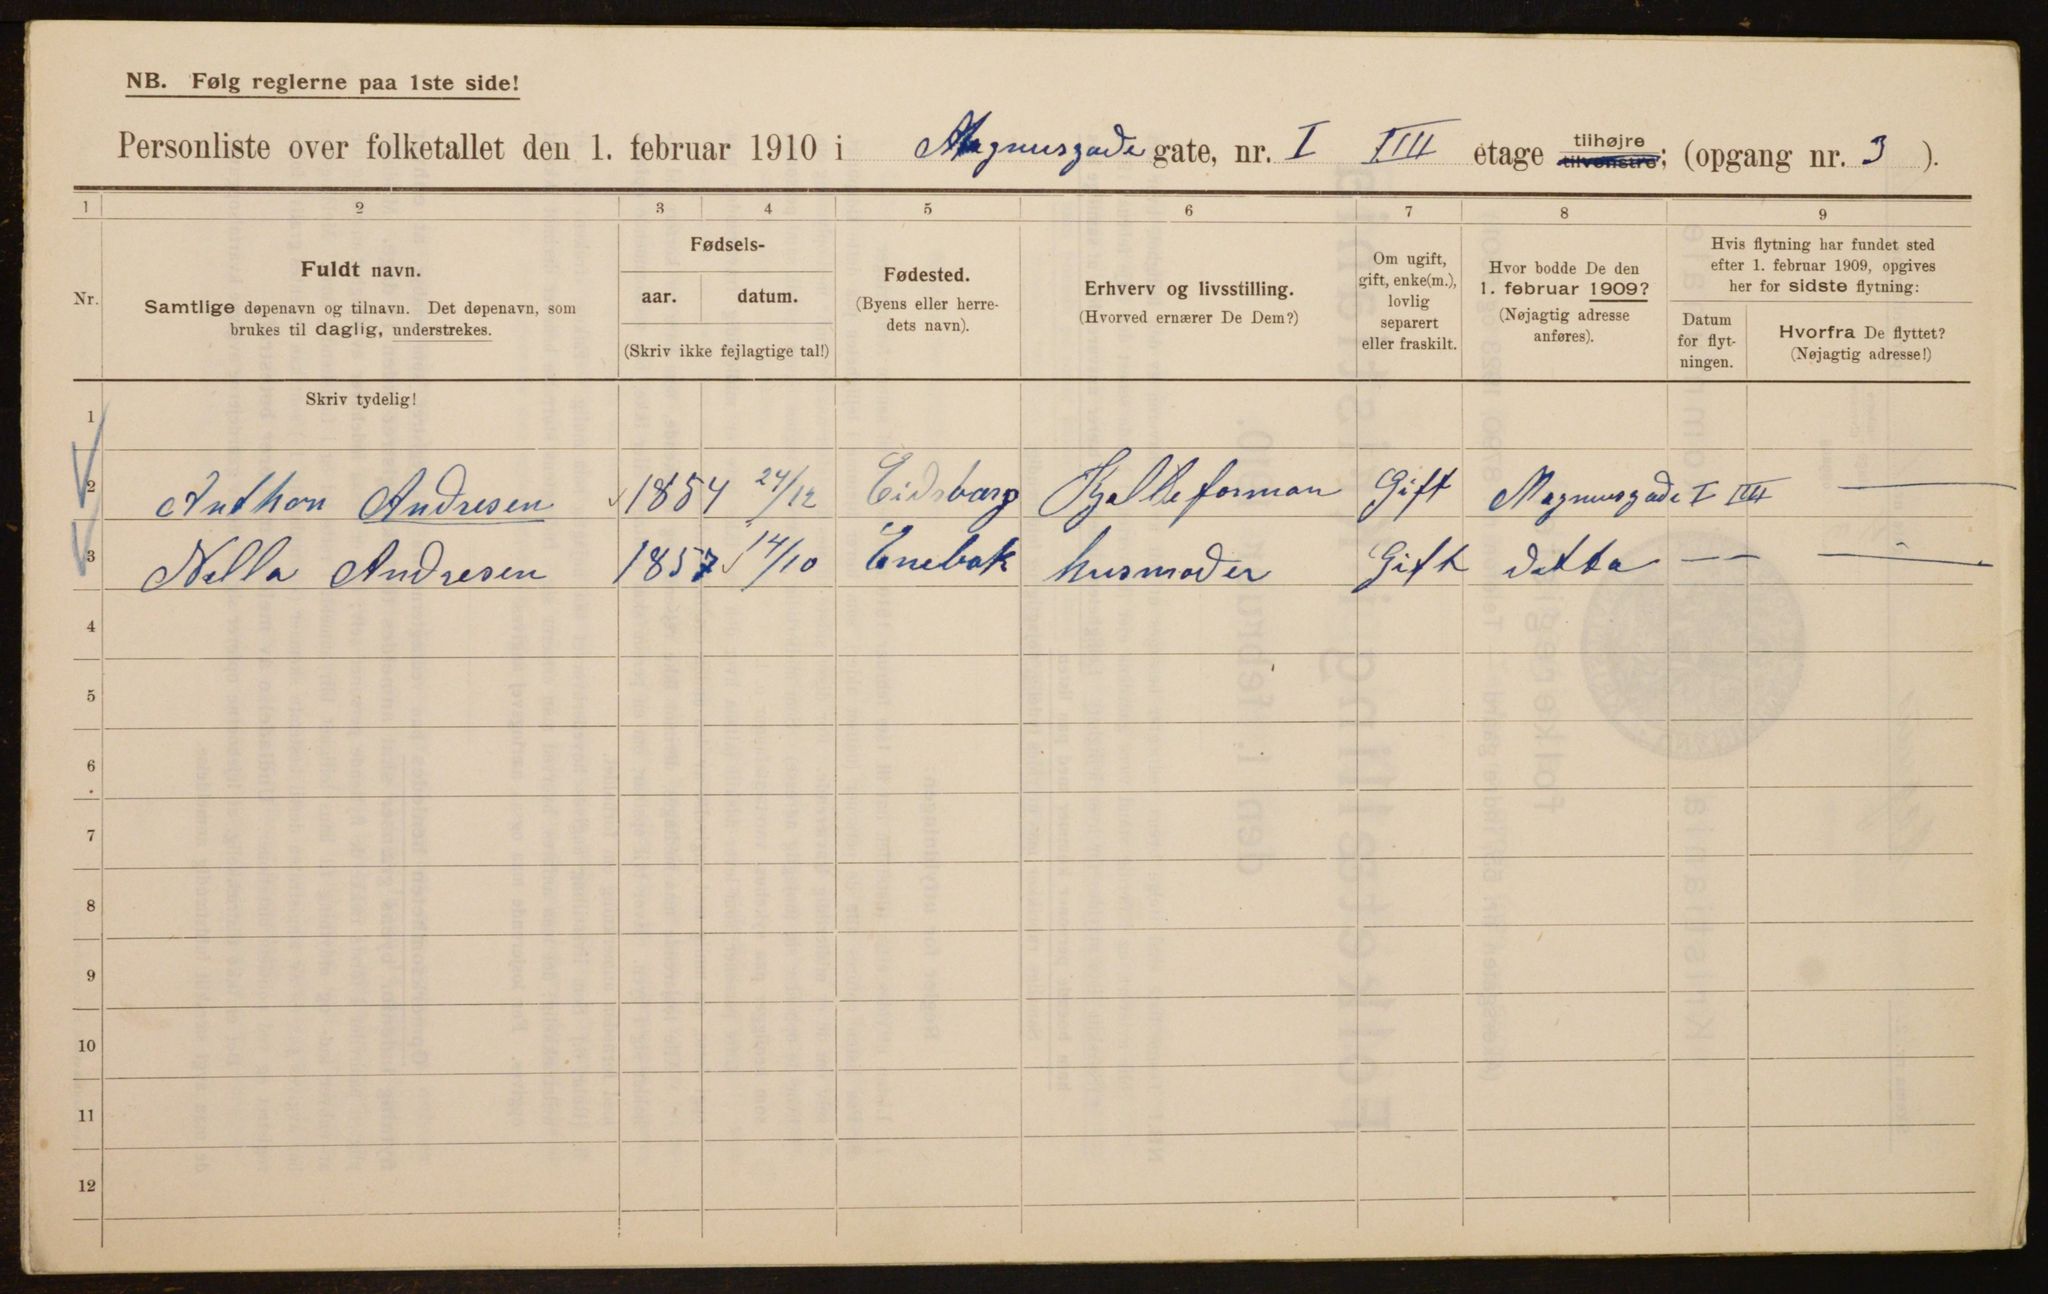 NB. Følg reglerne paa 1ste side!
Personliste over folketallet den 1. februar 1910 i Magnusgade gate, nr. I IIII etage tilhøjre tilvenstre; (opgang nr. 3 ).
1 2 3 4 5 6 7 8 9
Nr.
Fuldt navn.
Samtlige døpenavn og tilnavn. Det døpenavn, som
brukes til daglig, understrekes.
Fødsels-
aar. datum.
(Skriv ikke fejlagtige tal!)
Fødested.
(Byens eller herre-
dets navn).
Erhverv og livsstilling.
(Hvorved ernærer De Dem?)
Om ugift,
gift, enke(m.),
lovlig
separert
eller fraskilt.
Hvor bodde De den
1. februar 1909?
(Nøjagtig adresse
anføres).
Hvis flytning har fundet sted
efter 1. februar 1909, opgives
her for sidste flytning:
Datum
for flyt-
ningen.
Hvorfra De flyttet?
(Nøjagtig adresse!)
Skriv tydelig!
1
2 Anthon Andresen 1854 24/12 Eidsbarg Kjelleforman Gift Magnusgade I IIII —
3 Nella Andresen 1857 14/10 Enebak husmoder Gift detta — —
4
5
6
7
8
9
10
11
12